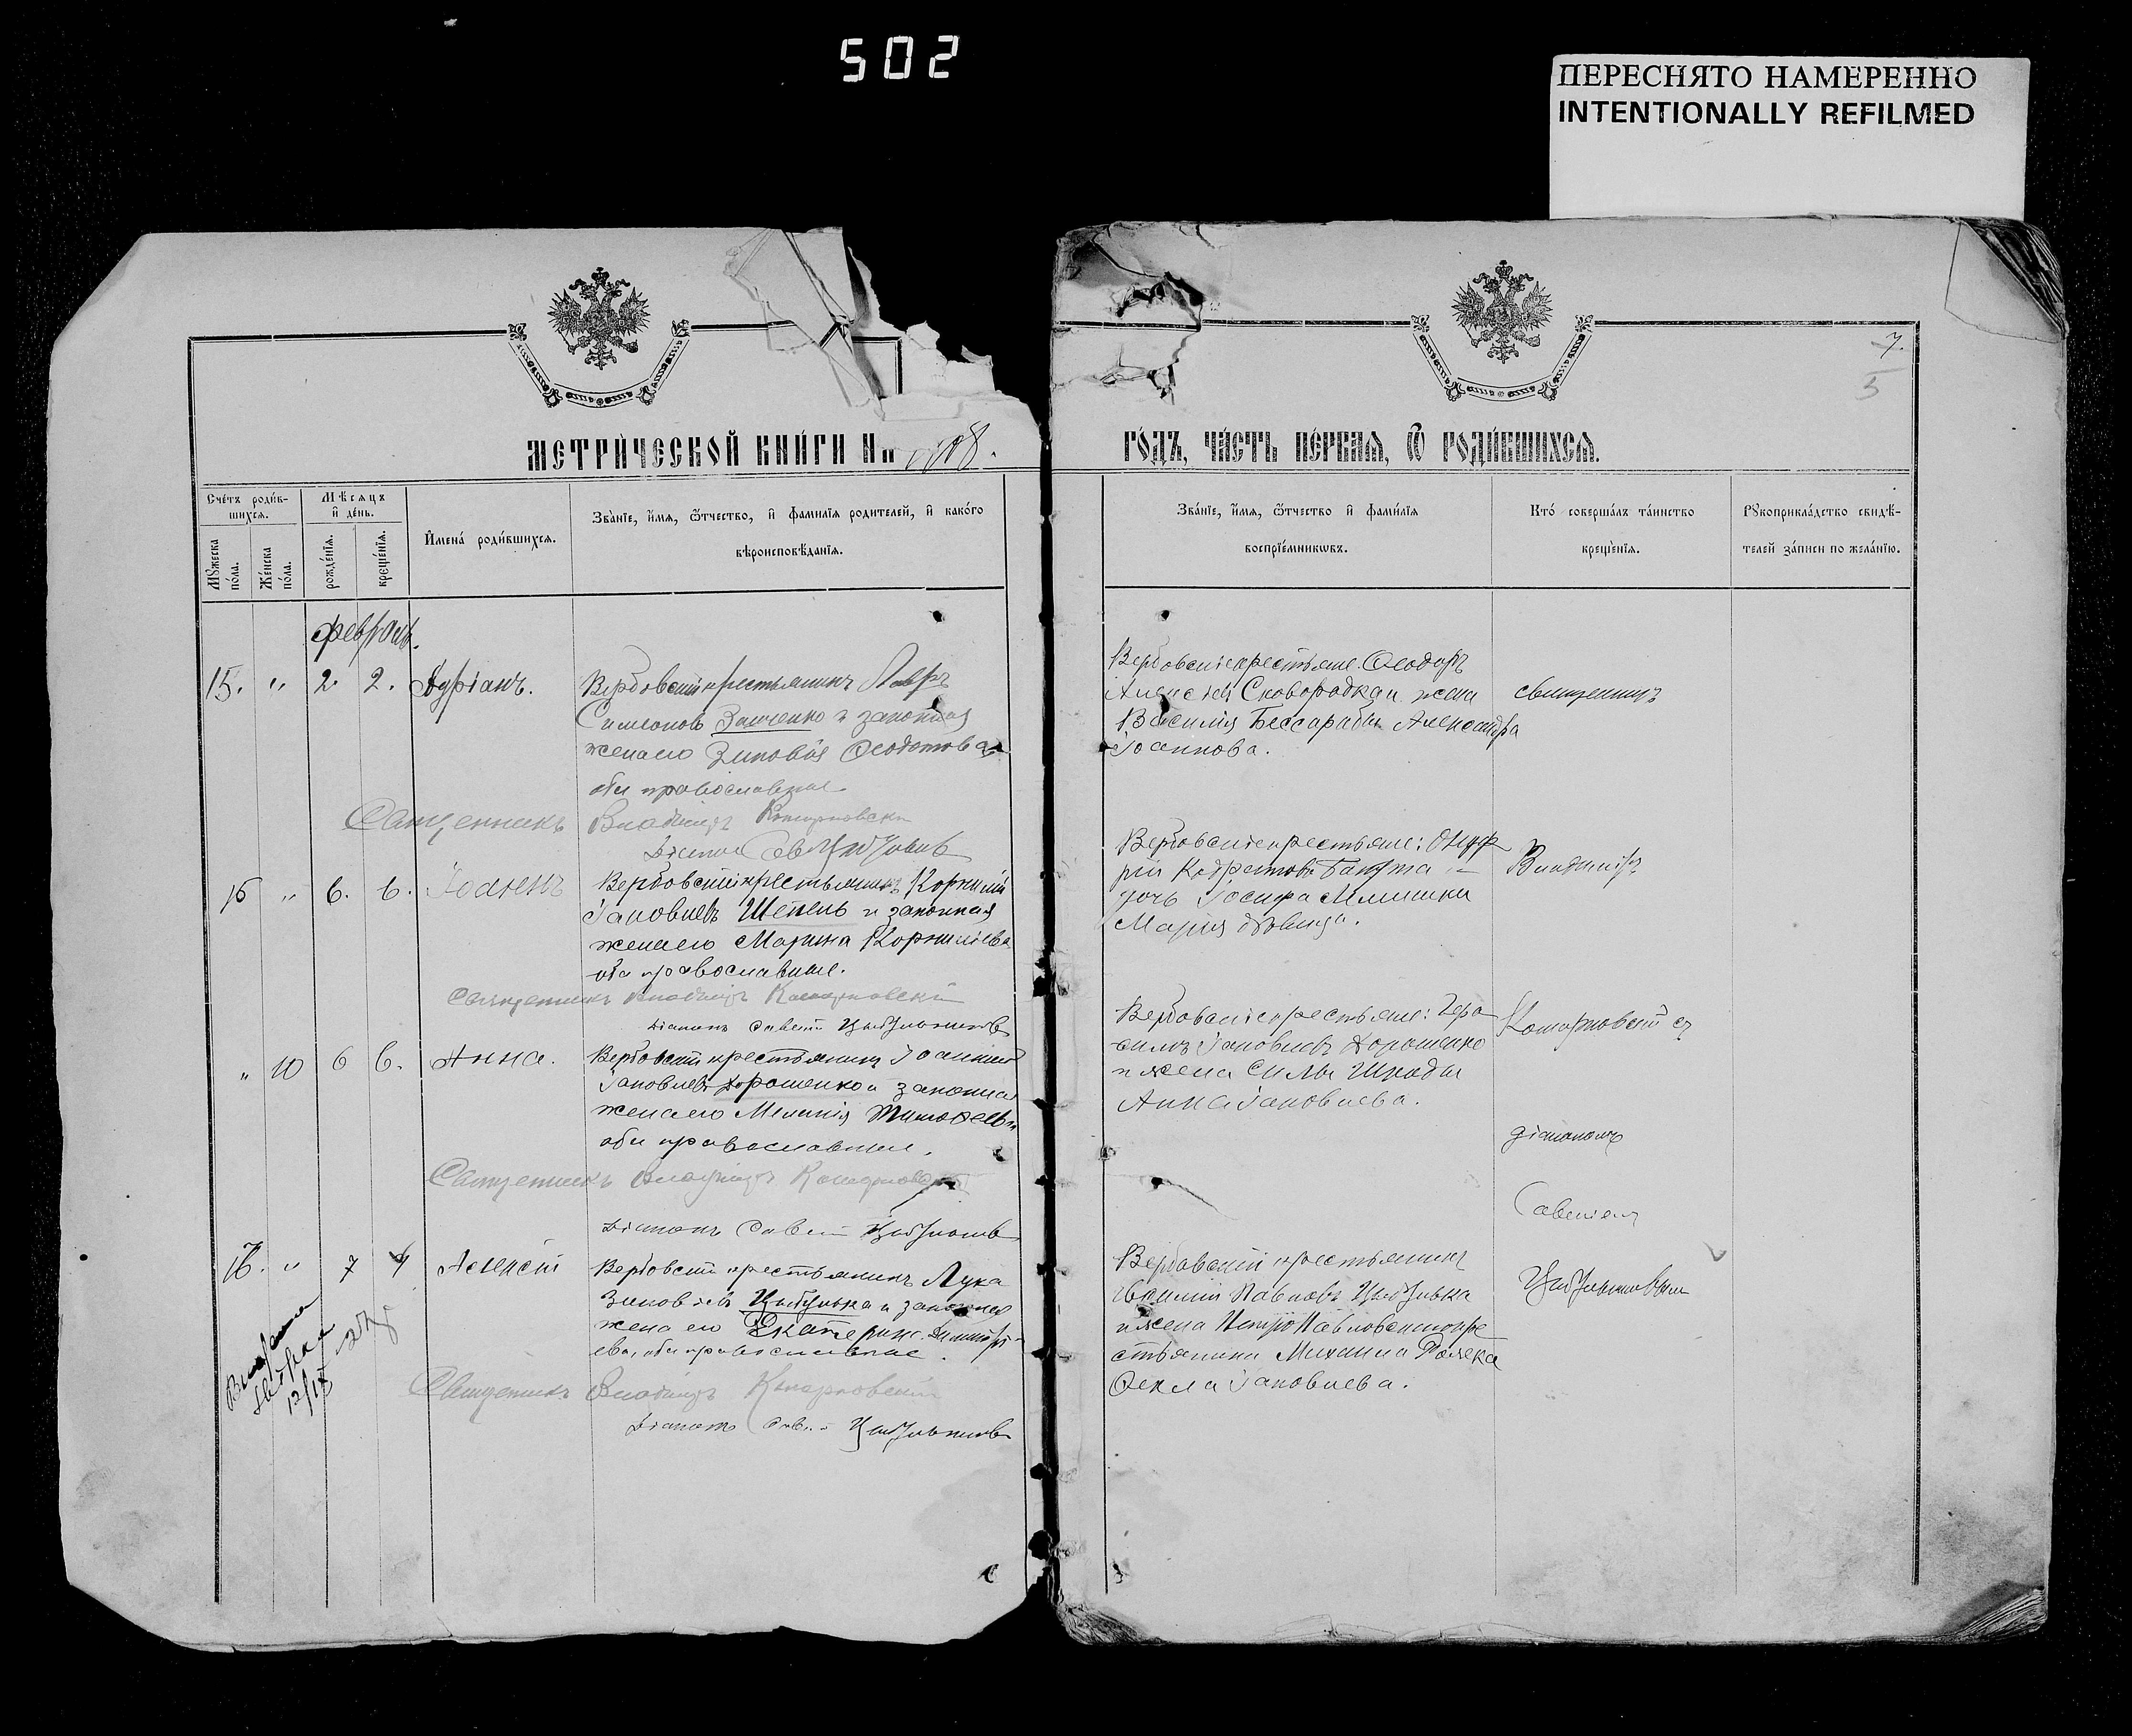 502
ПЕРЕСНЯТО НАМЕРЕННО
INTENTIONALLY REFILMED
7.
5
МЕТРИ́ЧЕСКОЙ КНИ́ГИ НА 1908.
ГО́ДЪ, ЧА́СТЬ ПЕ́РВАѦ, Ѿ РОДИ́ВШИХСѦ.
Счётъ роди́в-
шихсѧ.
Мѣ́сѧцъ
и҆ де́нь.
И҆мена́ роди́вшихсѧ.
Зва́нїе, и҆́мѧ, ѻ҆́тчество, и҆ фами́лїѧ роди́телей, и҆ како́го
вѣроисповѣ́данїѧ.
Мꙋ́жеска
по́ла.
Же́нска
по́ла.
рожде́нїѧ.
креще́нїѧ.
Зва́нїе, и҆́мѧ, ѻ҆́тчество и҆ фами́лїѧ
воспрїе́мникѡвъ.
Кто́ соверша́лъ та́инство
креще́нїѧ.
Рꙋкоприкла́дство свидѣ́-
телей за́писи по жела́нїю.
февраль.
15. " 2. 2. Адріанъ.
Вербовскій крестьянинъ Лавръ
Симеоновъ Заиченко и законная
жена его Зиновія Ѳеодотова
оба православные
Священникъ Владиміръ Комарновскій
Діаконъ Савелій Цыбульниковъ
Вербовскіе крестьяне: Ѳеодоръ
Алексіевъ Сковородка и жена
Василія Бессарабы Александра
Іоаннова.
священникъ
16 " 6. 6. Іоаннъ
Вербовскій крестьянинъ Корнилій
Іаковлевъ Шепель и законная
жена его Марина Корниліева
оба православные.
Священникъ Владиміръ Комарновскій
Діаконъ Савелій Цыбульниковъ
Вербовскіе крестьяне: Онуф
рій
дочь Іосифа
Марія дѣвица.
Владиміръ
" 10 6 6. Анна.
Вербовскій крестьянинъ Іоанникій
Іаковлевъ Дорошенко и законная
жена его Меланія Тимоѳеева
оба православные.
Священникъ Владиміръ Комарновскій
Діаконъ Савелій Цыбульниковъ
Вербовскіе крестьяне: Гера
симъ Іаковлевъ Дорошенко
и жена Силы Шкоды
Анна Іаковлева.
Комарновскій съ
діакономъ
Савеліемъ
Цыбульниковымъ
16. " 7 7 Алексій
Вербовскій крестьянинъ Лука
Зиновіевъ Цыбулька и законная
жена его Екатерина Димитрі-
ева, оба православные.
Священникъ Владиміръ Комарновскій
Діаконъ Савелій Цыбульниковъ
Вербовскій крестьянинъ
Павловъ Цыбулька
и жена Петропавловскаго кре
стьянина Михаила
Ѳекла Іаковлева.